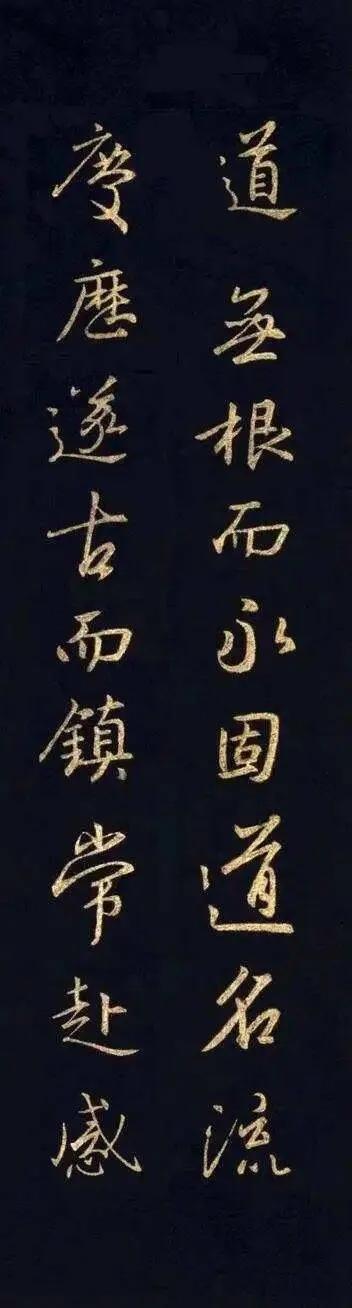 道無根而永固道名流
慶歷遂古而鎮常赴感